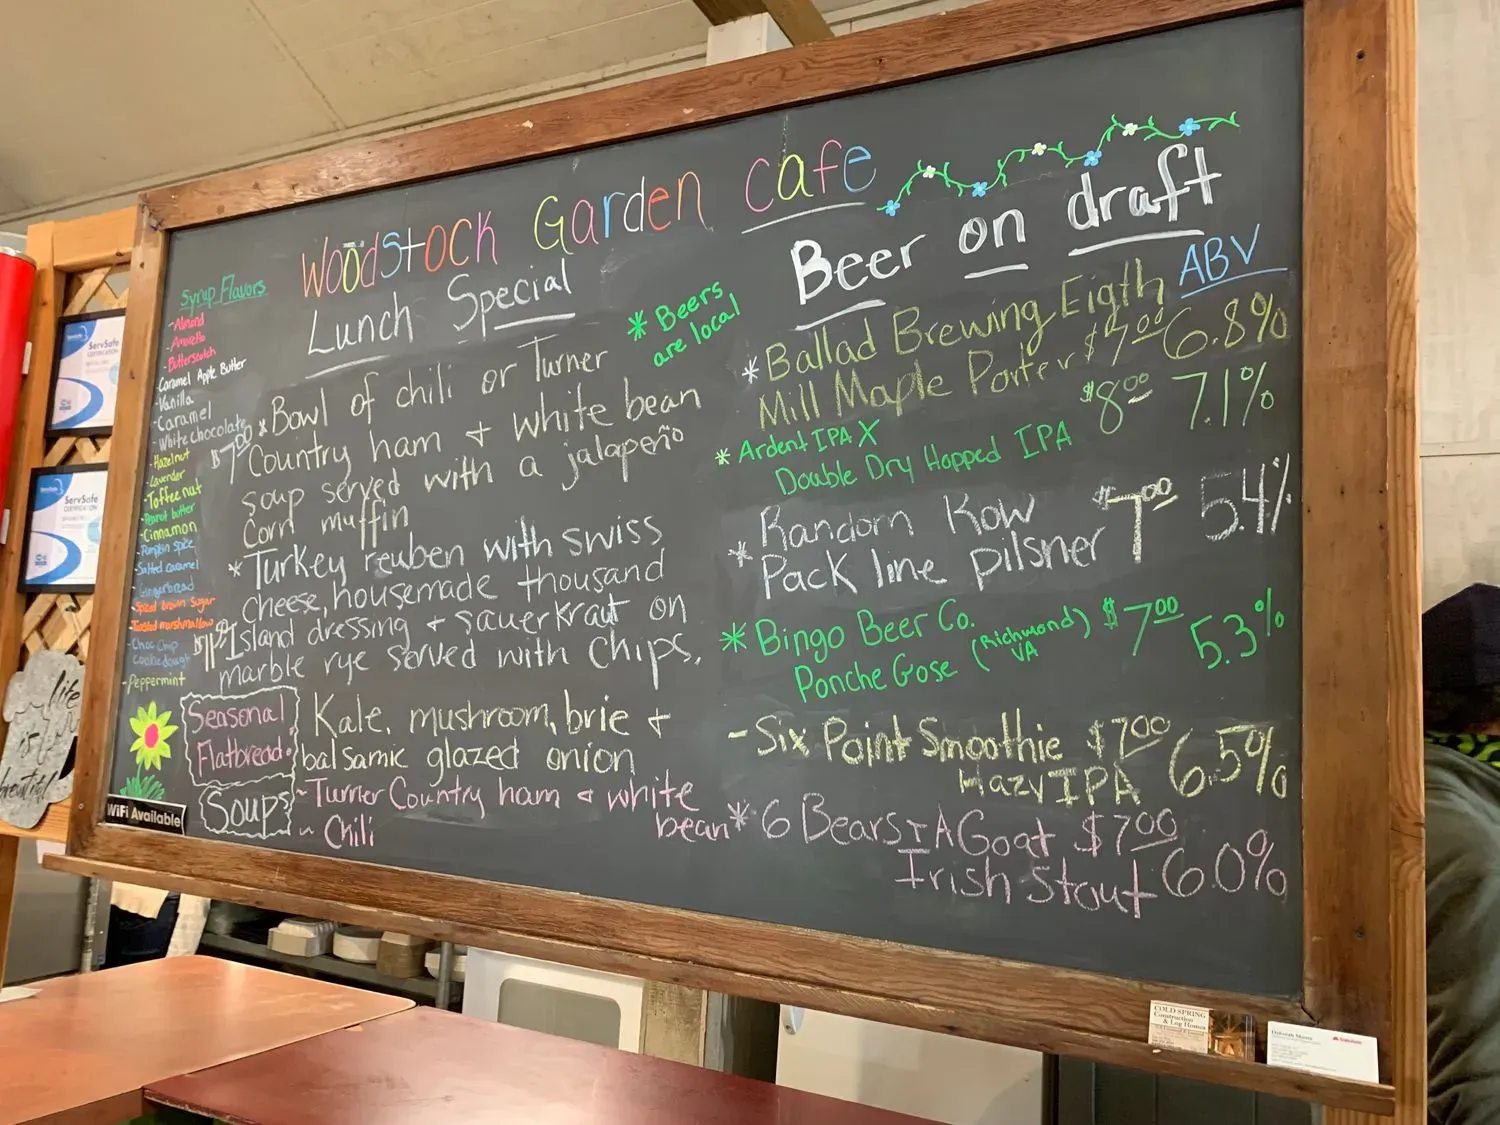 Woodstock Garden Cafe
Syrup Flavors
- Almond
- Amaretto
- Butterscotch
- Caramel Apple Butter
- Vanilla
- Caramel
- White chocolate
- Hazelnut
- Lavender
- Toffee nut
- Peanut butter
- Cinnamon
- Pumpkin Spice
- Salted caramel
- Gingerbread
- Spiced brown sugar
- Toasted marshmallow
- Choc Chip
cookie dough
- Peppermint
WiFi Available
Lunch Special
* Bowl of chili or Turner
$7.00 Country ham + white bean
soup served with a jalapeño
Corn muffin
* Turkey reuben with swiss
cheese, housemade thousand
Island dressing + sauerkraut on
marble rye served with chips.
Seasonal
Flatbread:
Kale, mushroom, brie +
balsamic glazed onion
Soups
~ Turner Country ham + white
bean
~ Chili
* Beers
are local
Beer on draft
ABV
* Ballad Brewing Eigth
Mill Maple Porter $7.00 6.8%
* Ardent IPA X
Double Dry Hopped IPA $8.00 7.1%
* Random Row
Pack line pilsner $7.00 5.4%
* Bingo Beer Co.
Ponche Gose (Richmond VA) $7.00 5.3%
- Six Point Smoothie $7.00
Hazy IPA 6.5%
* 6 Bears + A Goat $7.00
Irish Stout 6.0%
ServSafe
CERTIFICATION
ServSafe
CERTIFICATION
life
is
beautiful
COLD SPRING
Construction
& Log Homes